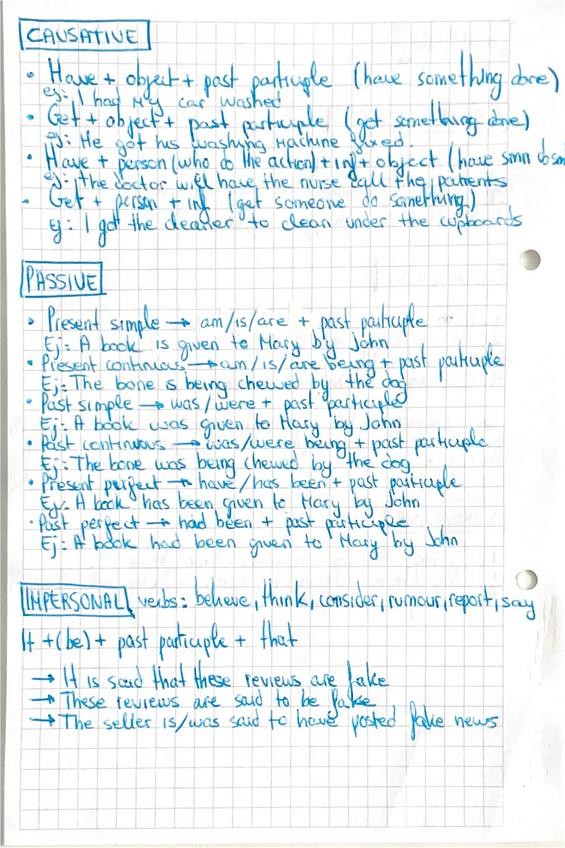 CAUSATIVE
• Have + object + past participle (have something done)
eg: I had my car washed
• Get + object + past participle (get something done)
eg: He got his washing machine fixed.
• Have + person (who do the action) + inf + object (have smn do smth
eg: The doctor will have the nurse call the patients
• Get + person + inf (get someone do something)
eg: I got the cleaner to clean under the cupboards
PASSIVE
• Present simple → am/is/are + past participle
Ej: A book is given to Mary by John
• Present continuous → am/is/are being + past participle
Ej: The bone is being chewed by the dog
• Past simple → was/were + past participle
Ej: A book was given to Mary by John
• Past continuous → was/were being + past participle
Ej: The bone was being chewed by the dog
• Present perfect → have/has been + past participle
Ej: A book has been given to Mary by John
• Past perfect → had been + past participle
Ej: A book had been given to Mary by John
IMPERSONAL verbs: believe, think, consider, rumour, report, say
It + (be) + past participle + that
→ It is said that these reviews are fake
→ These reviews are said to be fake
→ The seller is/was said to have posted fake news